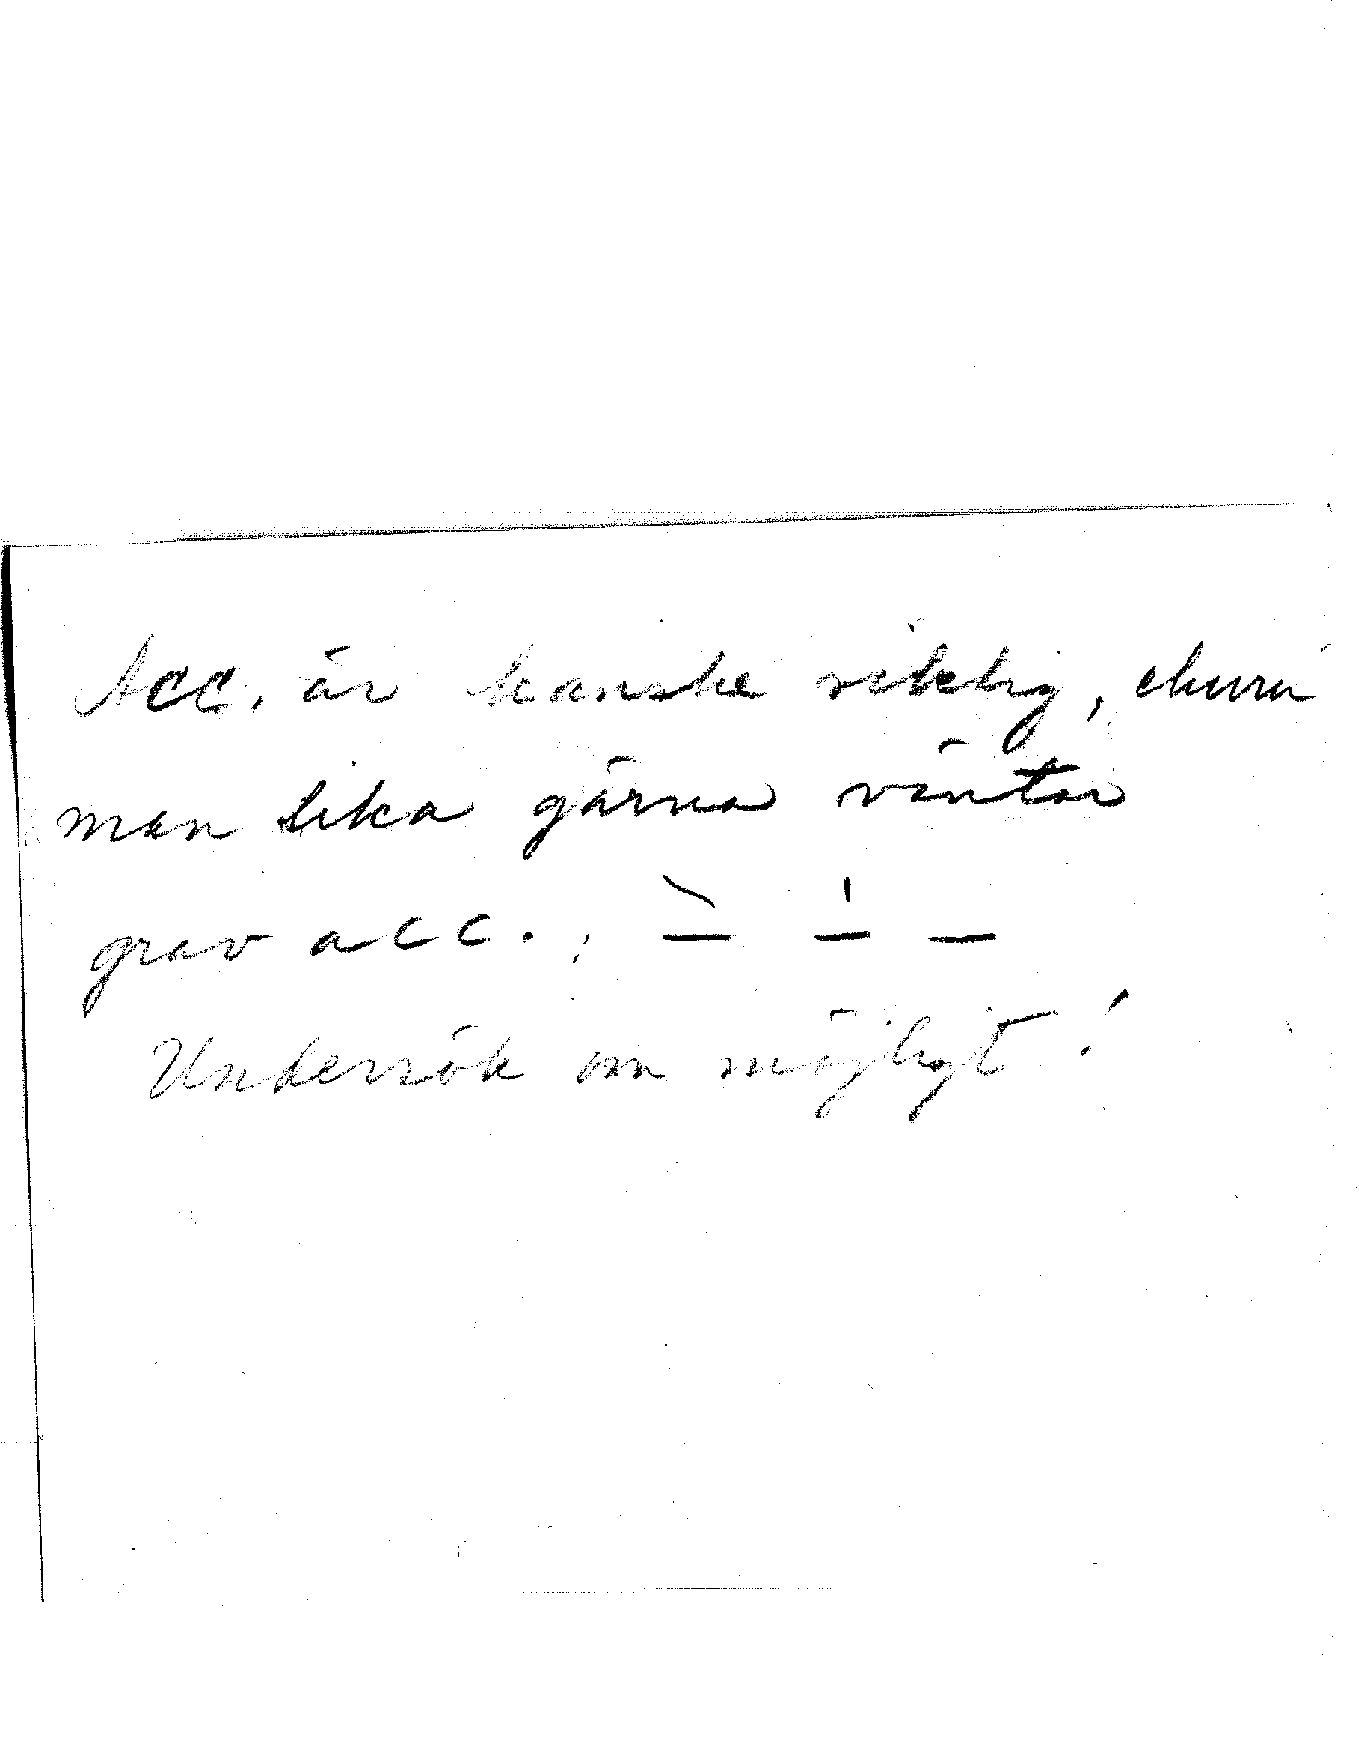 Acc. är kanske riktig, ehuru
man lika gärna väntar
grav acc.: ˋ— ˈ— —
Undersök om möjligt!